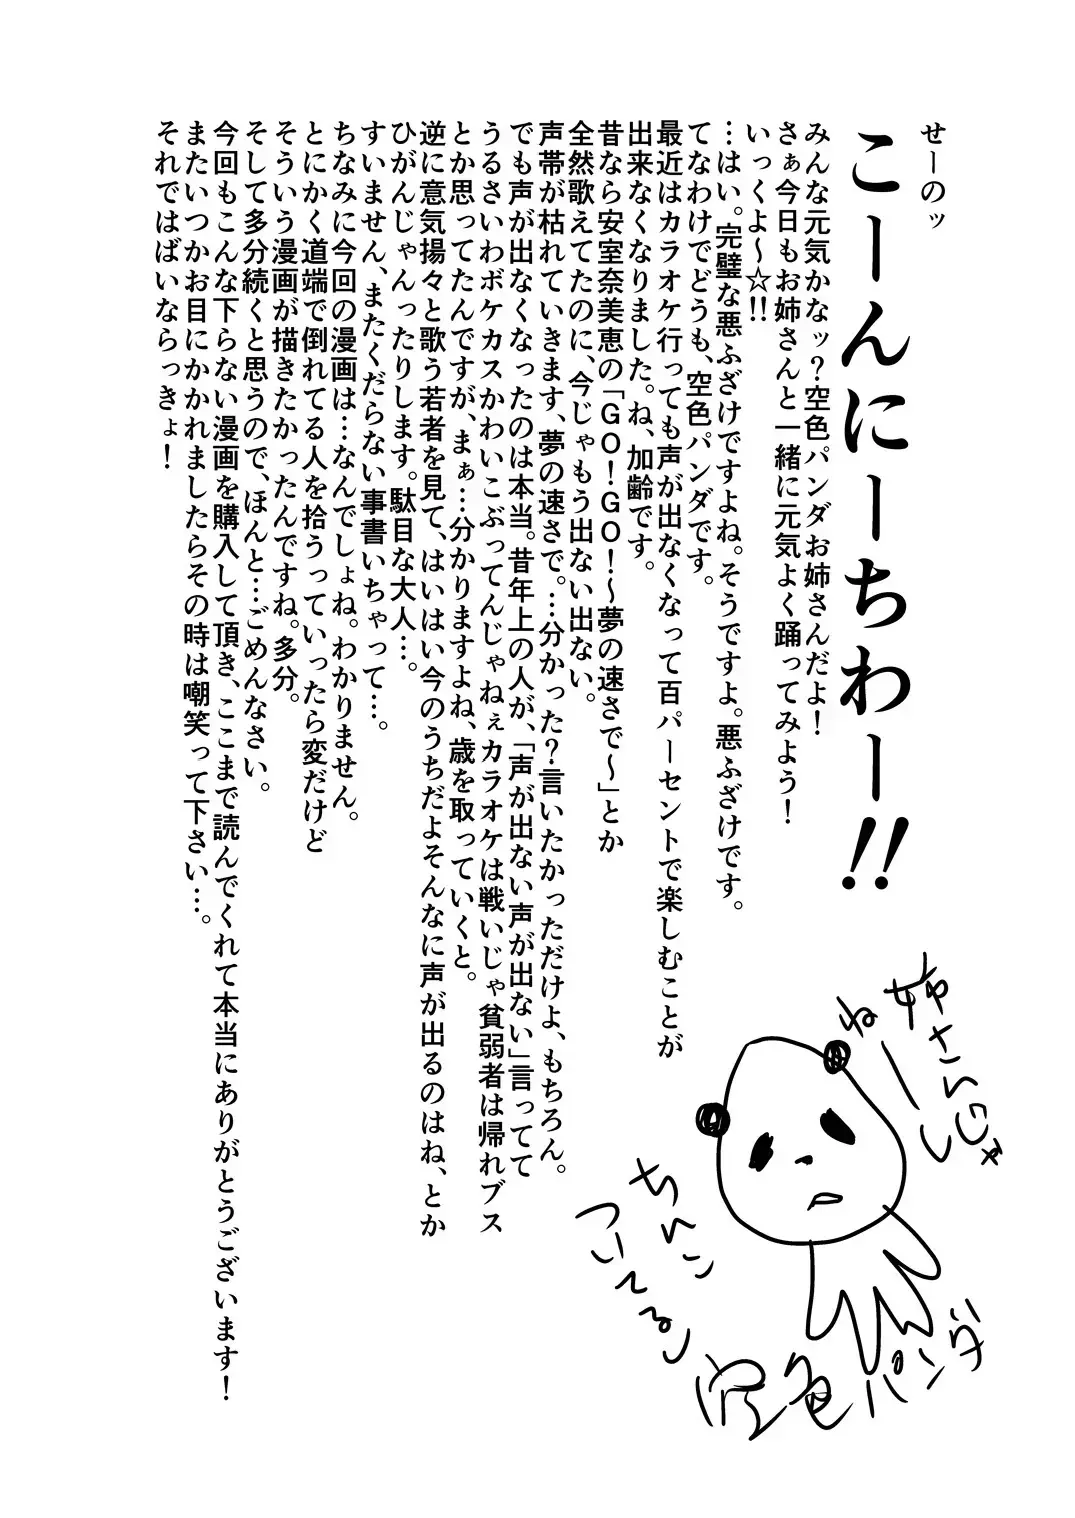 せーのッ
こーんにーちわー!!
みんな元気かなッ？空色パンダお姉さんだよ！
さぁ今日もお姉さんと一緒に元気よく踊ってみよう！
いっくよ〜☆!!
…はい。完璧な悪ふざけですよね。そうですよ。悪ふざけです。
てなわけでどうも、空色パンダです。
最近はカラオケ行っても声が出なくなって百パーセントで楽しむことが
出来なくなりました。ね、加齢です。
昔なら安室奈美恵の「ＧＯ！ＧＯ！〜夢の速さで〜」とか
全然歌えてたのに、今じゃもう出ない出ない。
声帯が枯れていきます、夢の速さで。…分かった？言いたかっただけよ、もちろん。
でも声が出なくなったのは本当。昔年上の人が、「声が出ない声が出ない」言ってて
うるさいわボケカスかわいこぶってんじゃねぇカラオケは戦いじゃ貧弱者は帰れブス
とか思ってたんですが、まぁ…分かりますよね、歳を取っていくと。
逆に意気揚々と歌う若者を見て、はいはい今のうちだよそんなに声が出るのはね、とか
ひがんじゃんったりします。駄目な大人…。
すいません、またくだらない事書いちゃって…。
ちなみに今回の漫画は…なんでしょね。わかりません。
とにかく道端で倒れてる人を拾うっていったら変だけど
そういう漫画が描きたかったんですね。多分。
そして多分続くと思うので、ほんと…ごめんなさい。
今回もこんな下らない漫画を購入して頂き、ここまで読んでくれて本当にありがとうございます！
またいつかお目にかかれましたらその時は嘲笑って下さい…。
それではばいならっきょ！
姉さんじゃ
ねーし
ちんこ
ついてるし
空色パンダ